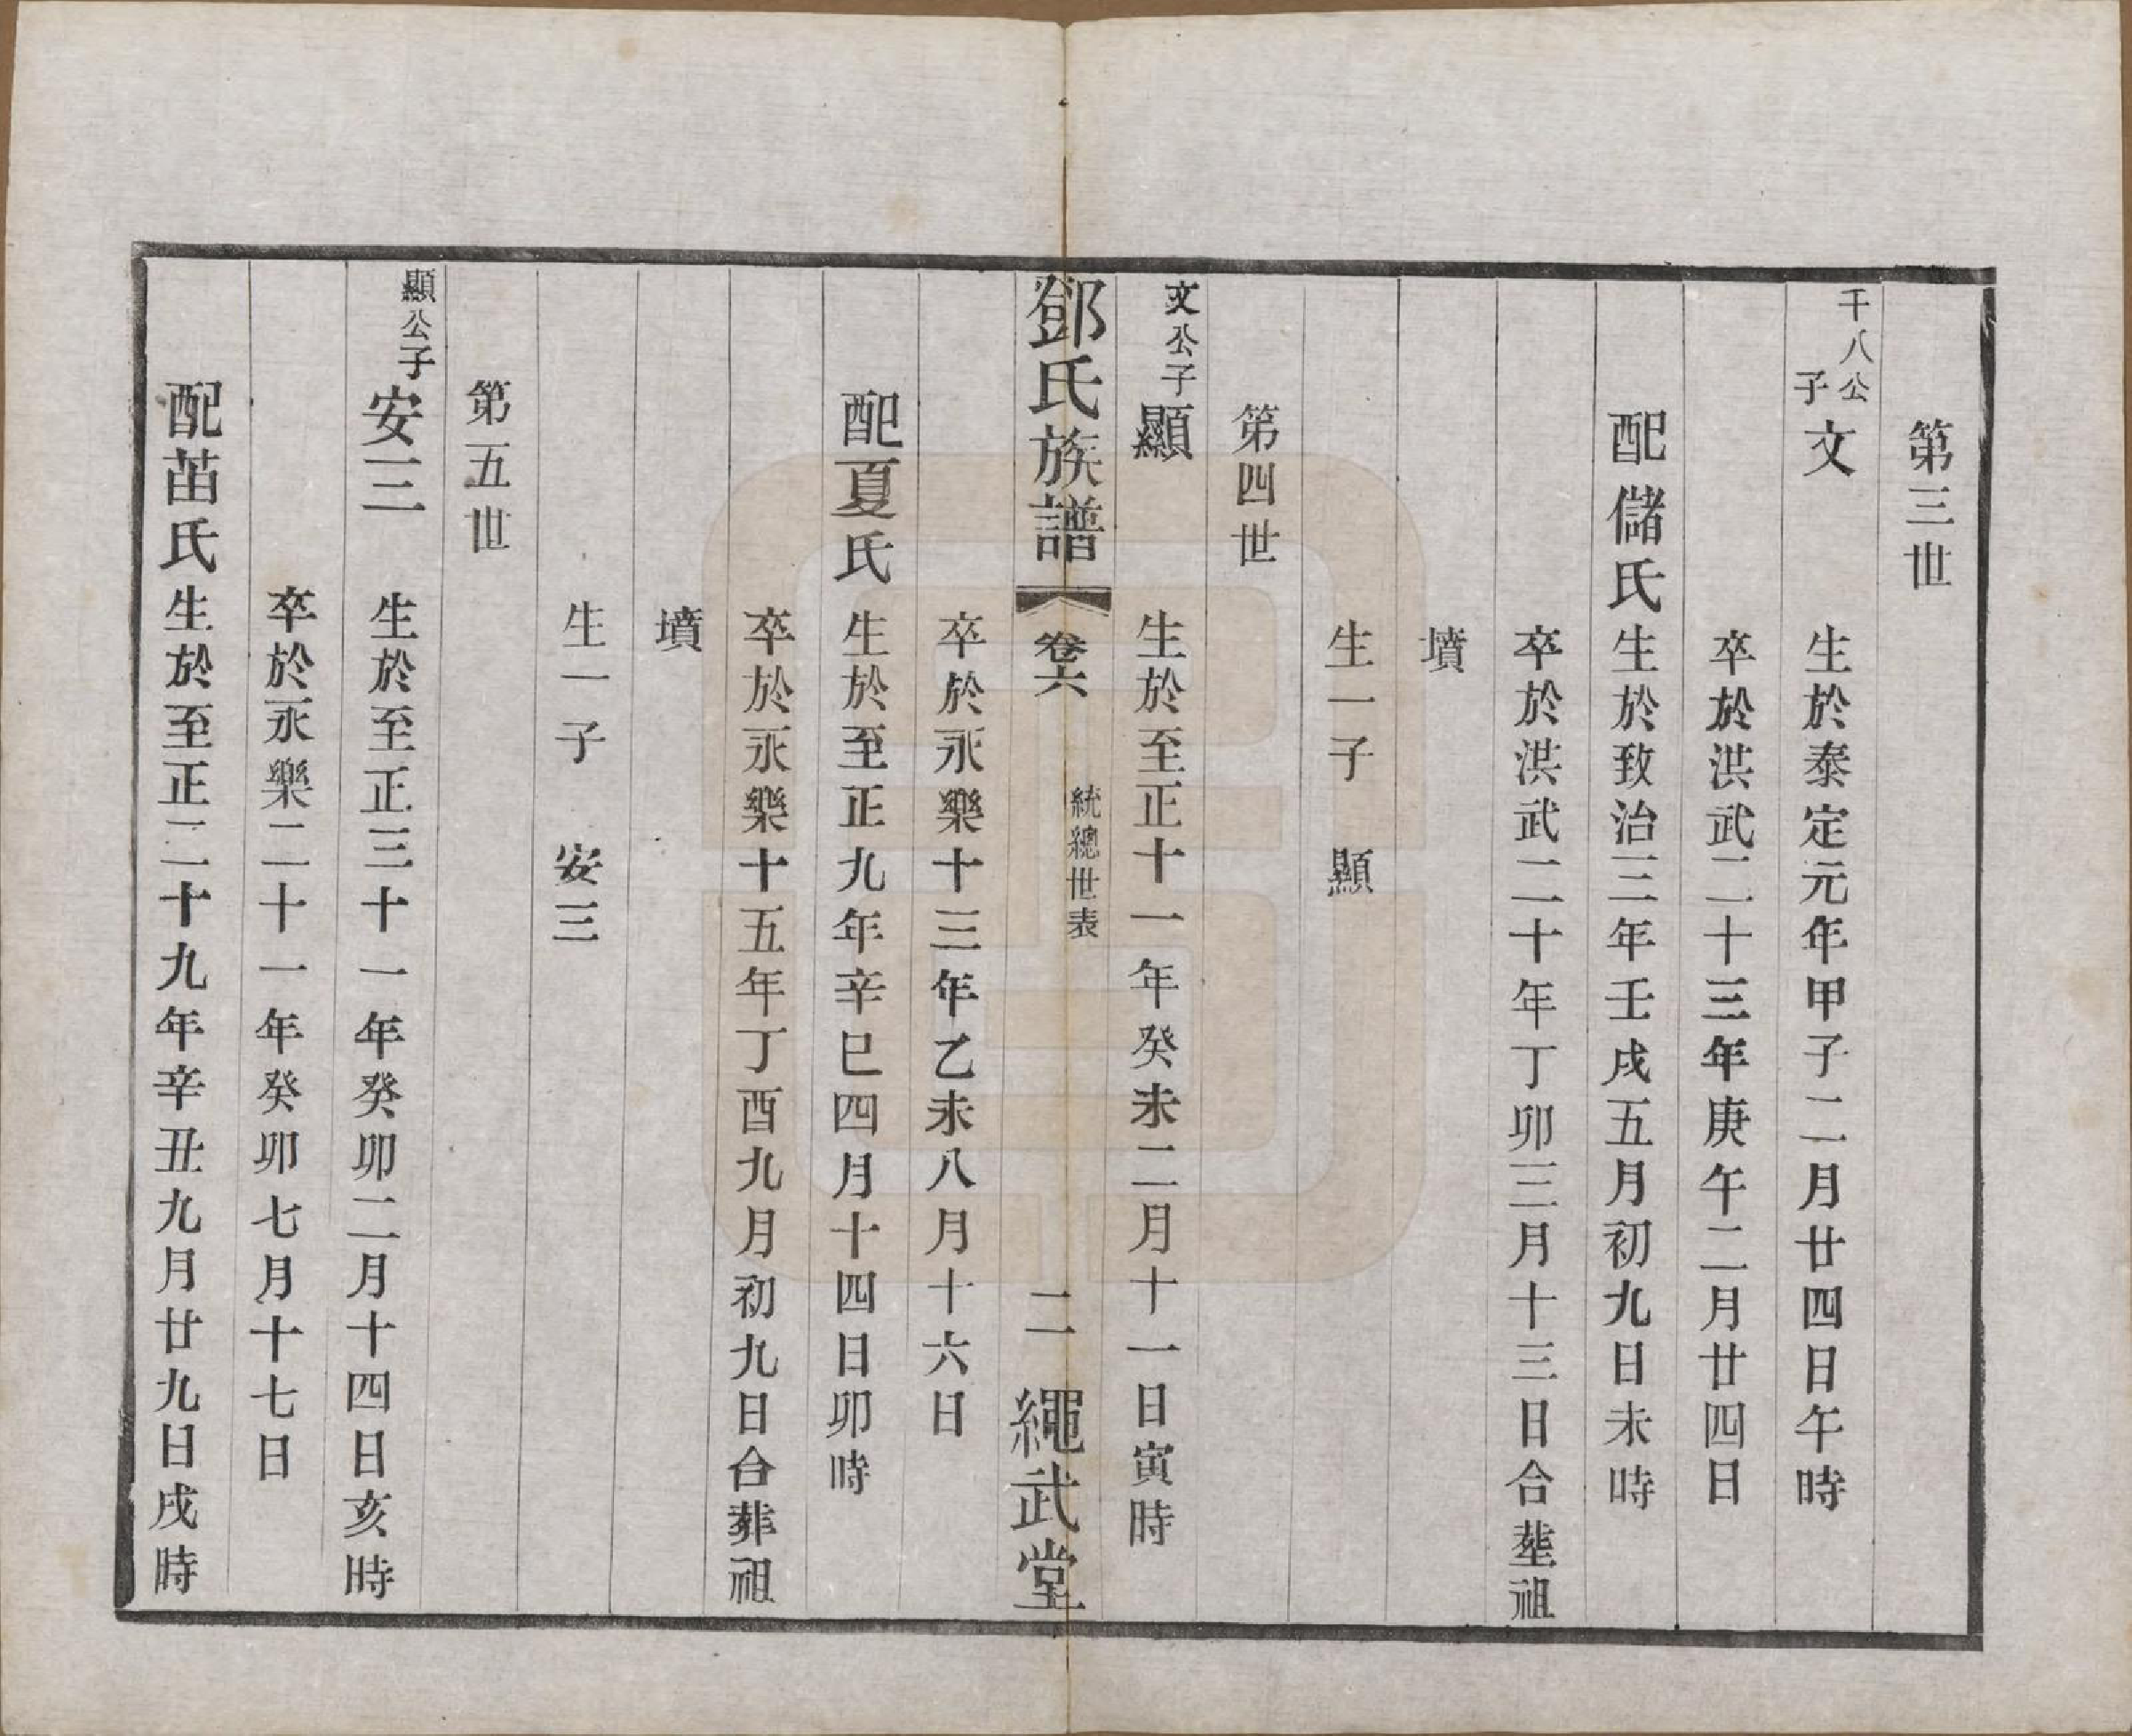 第三世
千八公子文　生於泰定元年甲子二月廿四日午時
卒於洪武二十三年庚午二月廿四日
配儲氏生於致治三年壬戌五月初九日未時
卒於洪武二十年丁卯三月十三日合塟祖
墳
生一子　顯
第四世
文公子顯　生於至正十一年癸未二月十一日寅時
鄧氏族譜　卷六　統總世表　二　繩武堂
卒於永樂十三年乙未八月十六日
配夏氏　生於至正九年辛巳四月十四日卯時
卒於永樂十五年丁酉九月初九日合葬祖
墳
生一子　安三
第五世
顯公子安三　生於至正三十一年癸卯二月十四日亥時
卒於永樂二十一年癸卯七月十七日
配苗氏生於至正二十九年辛丑九月廿九日戌時